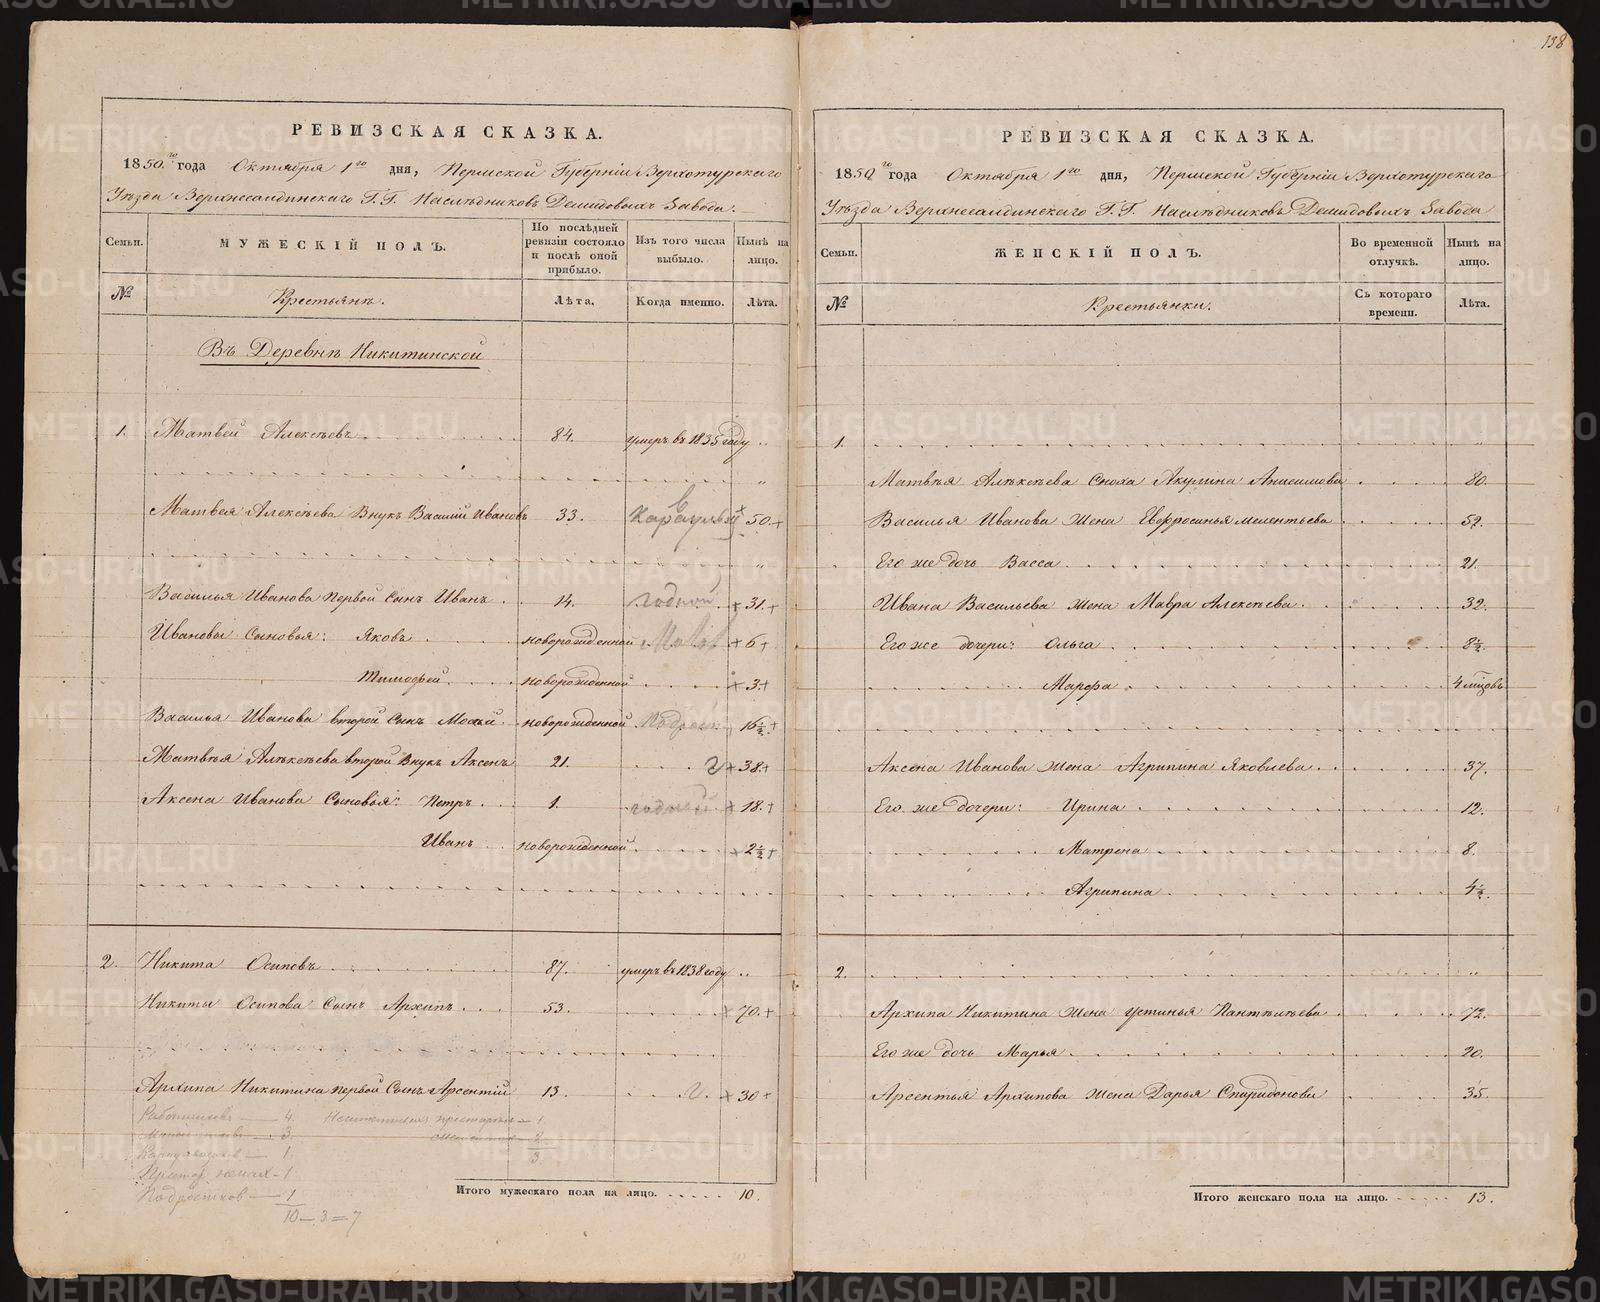 138
РЕВИЗСКАЯ СКАЗКА.
1850го года Октября 1го дня, Пермской Губерніи Верхотурскаго
Уѣзда Верхнесалдинскаго Г.Г. Наслѣдниковъ Демидовыхъ Завода.
Семьи. МУЖЕСКІЙ ПОЛЪ. По послѣдней ревизіи состояло и послѣ оной прибыло. Изъ того числа выбыло. Нынѣ на лицо.
№ Крестьянъ. Лѣта. Когда именно. Лѣта.
Въ Деревнѣ Никитинской
1. Матвей Алексѣевъ 84. умеръ въ 1835 году
Матвея Алексѣева Внукъ Василій Ивановъ 33. в Караульн 50.
Василья Иванова первой сынъ Иванъ 14. годной 31.
Ивановы Сыновья: Яковъ новорожденной 6
Тимофей новорожденной 3.
Василья Иванова второй сынъ Мосѣй новорожденной 16½
Матвѣя Алексѣева второй Внукъ Аксенъ 21. 38.
Аксена Иванова Сыновья: Петръ 1. годной 18.
Иванъ новорожденной 2½
2. Никита Осиповъ 87. умеръ въ 1838 году
Никиты Осипова Сынъ Архипъ 53. 70.
Архипа Никитина первой Сынъ Арсентій 13. 30
Работниковъ — 4.
— 3.
— 1.
— 1
Подростков — 1
10 — 3 = 7
— 1
2
3
Итого мужескаго пола на лицо. 10.
РЕВИЗСКАЯ СКАЗКА.
1850го года Октября 1го дня, Пермской Губерніи Верхотурскаго
Уѣзда Верхнесалдинскаго Г.Г. Наслѣдниковъ Демидовыхъ Завода
Семьи. ЖЕНСКІЙ ПОЛЪ. Во временной отлучкѣ. Нынѣ на лицо.
№ Крестьянки. Съ котораго времени. Лѣта.
1.
Матвѣя Алексѣева Сноха Акулина Анисимова 80.
Василья Иванова Жена Евфросинья Мелентьева 52.
Его же дочь Васса 21.
Ивана Васильева Жена Мавра Алексѣева 32.
Его же дочери: Ольга 8½
Марфа 4 мѣсяцовъ
Аксена Иванова Жена Агрипина Яковлева 37.
Его же дочери: Ирина 12.
Матрена 8.
Агрипина 4½
2.
Архипа Никитина Жена Устинья Пантелѣева 72.
Его же дочь Марья 20.
Арсентья Архипова Жена Дарья Спиридонова 35.
Итого женскаго пола на лицо. 13.
METRIKI.GASO-URAL.RU